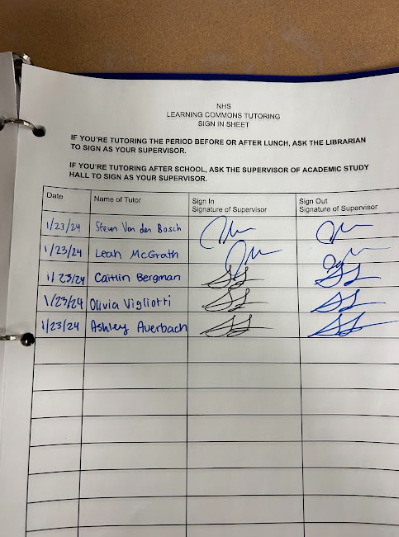 NHS
LEARNING COMMONS TUTORING
SIGN IN SHEET
IF YOU'RE TUTORING THE PERIOD BEFORE OR AFTER LUNCH, ASK THE LIBRARIAN
TO SIGN AS YOUR SUPERVISOR.
IF YOU'RE TUTORING AFTER SCHOOL, ASK THE SUPERVISOR OF ACADEMIC STUDY
HALL TO SIGN AS YOUR SUPERVISOR.
Date Name of Tutor Sign In Sign Out
Signature of Supervisor Signature of Supervisor
1/23/24 Van den Bosch
1/23/24 Leah McGrath
1/23/24 Caitlin Bergman
1/23/24 Olivia Vigliotti
1/23/24 Ashley Averbach